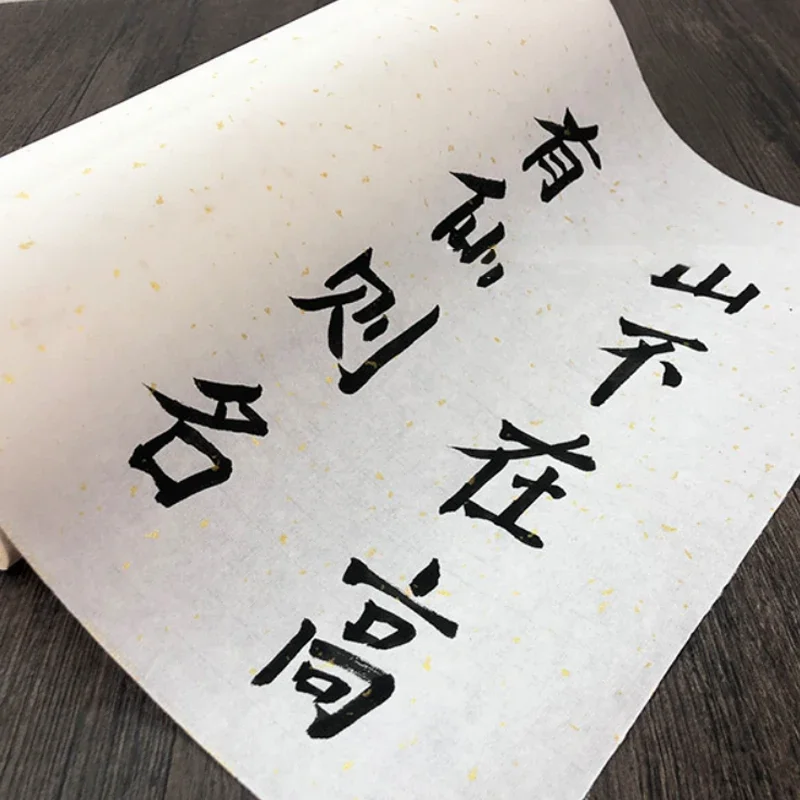 山不在高
有仙则名